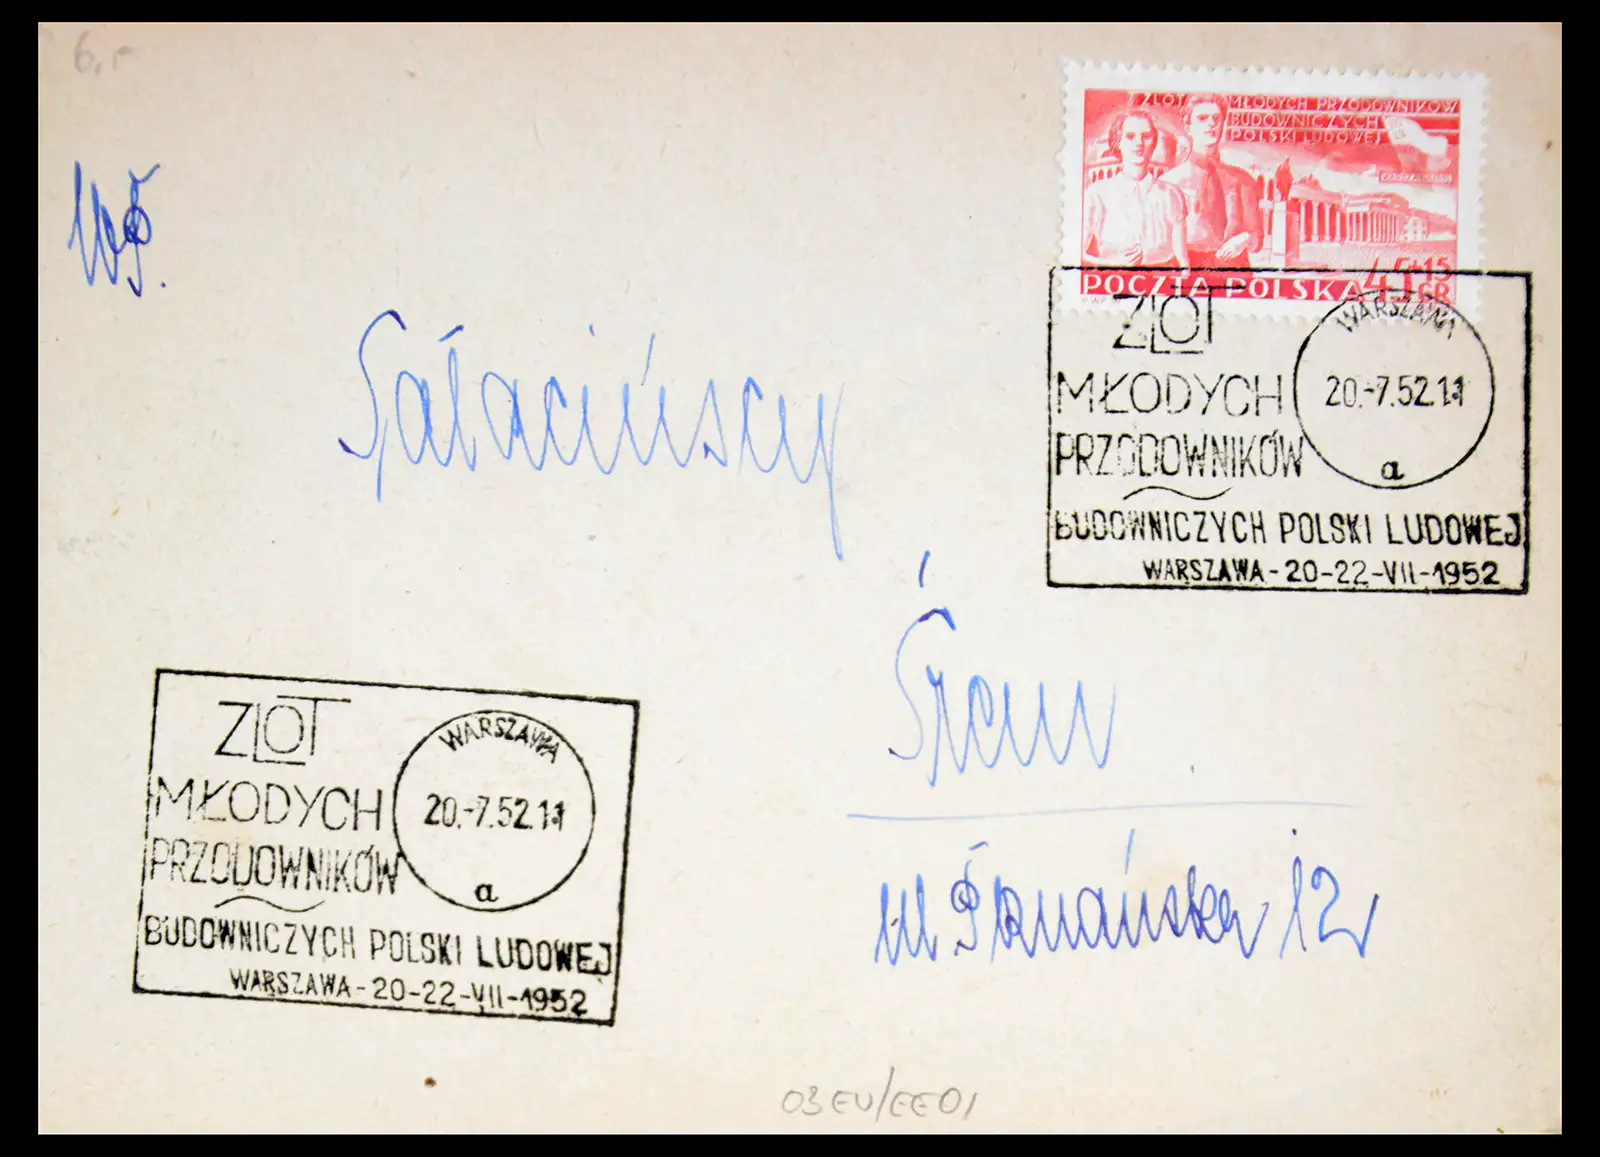 6,-
ZLOT MŁODYCH PRZODOWNIKÓW
BUDOWNICZYCH
POLSKI LUDOWEJ
POCZTA POLSKA 45+15 GR
Gałacińscy
ZLOT
MŁODYCH
PRZODOWNIKÓW
BUDOWNICZYCH POLSKI LUDOWEJ
WARSZAWA-20-22-VII-1952
WARSZAWA
20.-7.52.11
a
Śrem
ul Poznańska 12
ZLOT
MŁODYCH
PRZODOWNIKÓW
BUDOWNICZYCH POLSKI LUDOWEJ
WARSZAWA-20-22-VII-1952
WARSZAWA
20.-7.52.11
a
03EU/EE01